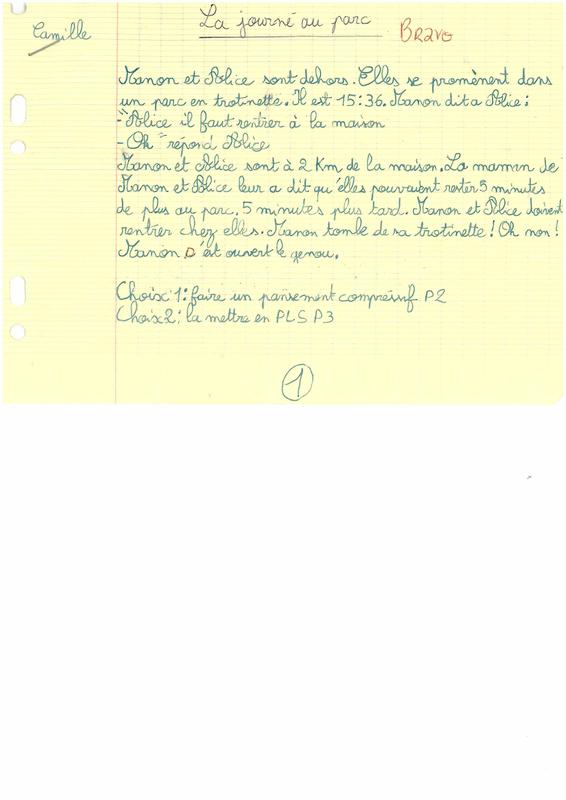 Camille
La journé au parc
BRAVO
Manon et Alice sont dehors. Elles se promènent dans
un parc en trotinette. Il est 15:36. Manon dit a Alice :
-"Alice il faut rentrer à la maison
-Oh" répond Alice
Manon et Alice sont à 2 Km de la maison. La maman de
Manon et Alice leur a dit qu'elles pouvaibnt rester 5 minutes
de plus au parc. 5 minutes plus tard. Manon et Alice doivent
rentrer chez elles. Manon tombe de sa trotinette ! Oh non !
Manon s'ét ouvert le genou.
Choix 1 : faire un pansement compressif P2
Choix 2 : la mettre en PLS P3
1